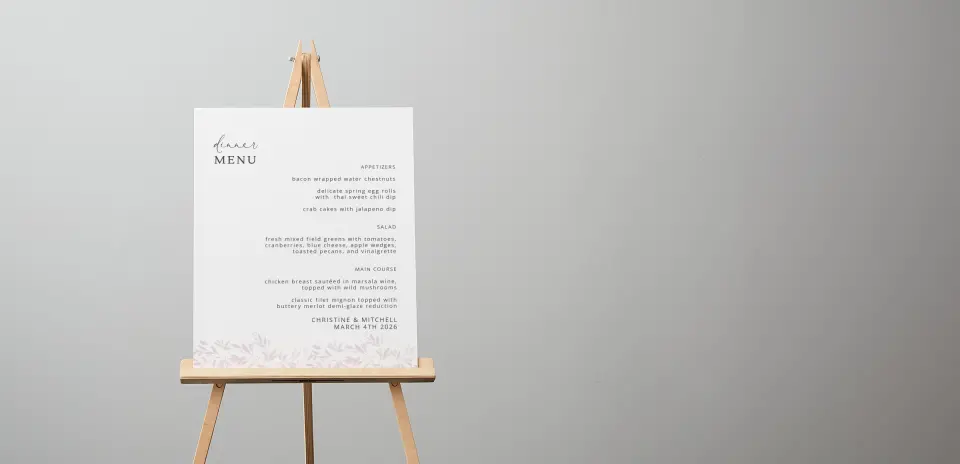 dinner
MENU
APPETIZERS
bacon wrapped water chestnuts
delicate spring egg rolls
with thai sweet chili dip
crab cakes with jalapeno dip
SALAD
fresh mixed field greens with tomatoes,
cranberries, blue cheese, apple wedges,
toasted pecans, and vinaigrette
MAIN COURSE
chicken breast sautéed in marsala wine,
topped with wild mushrooms
classic filet mignon topped with
buttery merlot demi-glaze reduction
CHRISTINE & MITCHELL
MARCH 4TH 2026